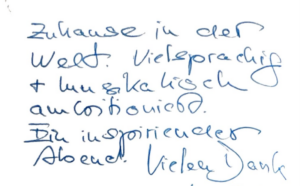 Zuhause in der
Welt. Vielsprachig
+ musikalisch
ambitioniert.
Ein inspirierender
Abend. Vielen Dank